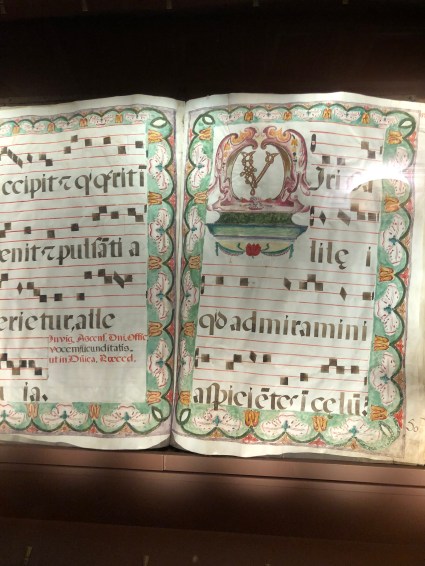 ccipit ⁊ q' q'riti
enit ⁊ pulsãti a
erietur, alle
In vig. Ascens. Dni. Offic.
Vocem iucunditatis.
ut in Dnica. Præced.
ia.
Viri ga
lilę i
qd admiramini
aspiciētes i celū?